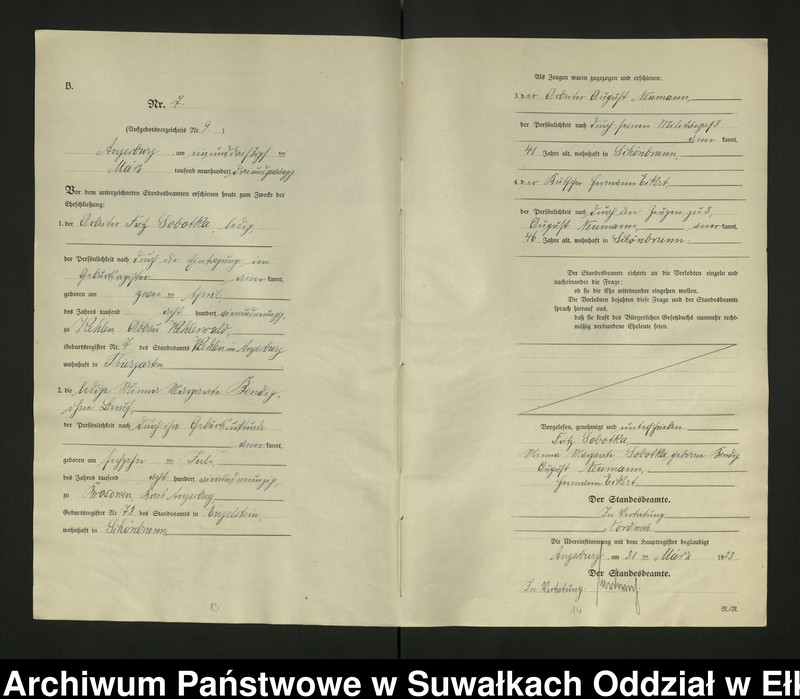 B.
Nr. 7.
(Aufgebotsverzeichnis Nr. 9.)
Angerburg am einunddreißigsten
März tausend neunhundert dreiundzwanzig
Vor dem unterzeichneten Standesbeamten erschienen heute zum Zwecke der
Eheschließung:
1. der Arbeiter Fritz Sobottka, ledig,
der Persönlichkeit nach durch die Eintragung im
Geburtsregister aner kannt,
geboren am zwei ten April
des Jahres tausend acht hundert vierundneunzig
zu Kehlen Abbau Kehlerwald,
Geburtsregister Nr. 7 des Standesamts Kehlen in Angerburg
wohnhaft in Thiergarten
2. die ledige Minna Margarete Bendig,
ohne Beruf,
der Persönlichkeit nach durch ihre Geburtsurkunde
aner kannt,
geboren am sechzehn ten Juli
des Jahres tausend acht hundert vierundneunzig,
zu Brosowen, Kreis Angerburg,
Geburtsregister Nr. 73 des Standesamts in Engelstein,
wohnhaft in Schönbrunn,
13
Als Zeugen waren zugezogen und erschienen:
3. der Arbeiter August Neumann,
der Persönlichkeit nach durch seinen Militärpaß
aner kannt,
41 Jahre alt, wohnhaft in Schönbrunn,
4. der Kutscher Hermann Eckert,
der Persönlichkeit nach durch den Zeugen zu 3,
August Neumann, aner kannt,
46 Jahre alt, wohnhaft in Schönbrunn.
Der Standesbeamte richtete an die Verlobten einzeln und
nacheinander die Frage:
ob sie die Ehe miteinander eingehen wollen.
Die Verlobten bejahten diese Frage und der Standesbeamte
sprach hierauf aus,
daß sie kraft des Bürgerlichen Gesetzbuchs nunmehr recht-
mäßig verbundene Eheleute seien.
Vorgelesen, genehmigt und unterschrieben
Fritz Sobottka,
Minna Margarete Sobottka geborene Bendig
August Neumann,
Hermann Eckert
Der Standesbeamte.
In Vertretung
Die Übereinstimmung mit dem Hauptregister beglaubigt
Angerburg, am 31 ten März 1923.
Der Standesbeamte.
In Vertretung
14
N.-R.
Archiwum Państwowe w Suwałkach Oddział w Ełk